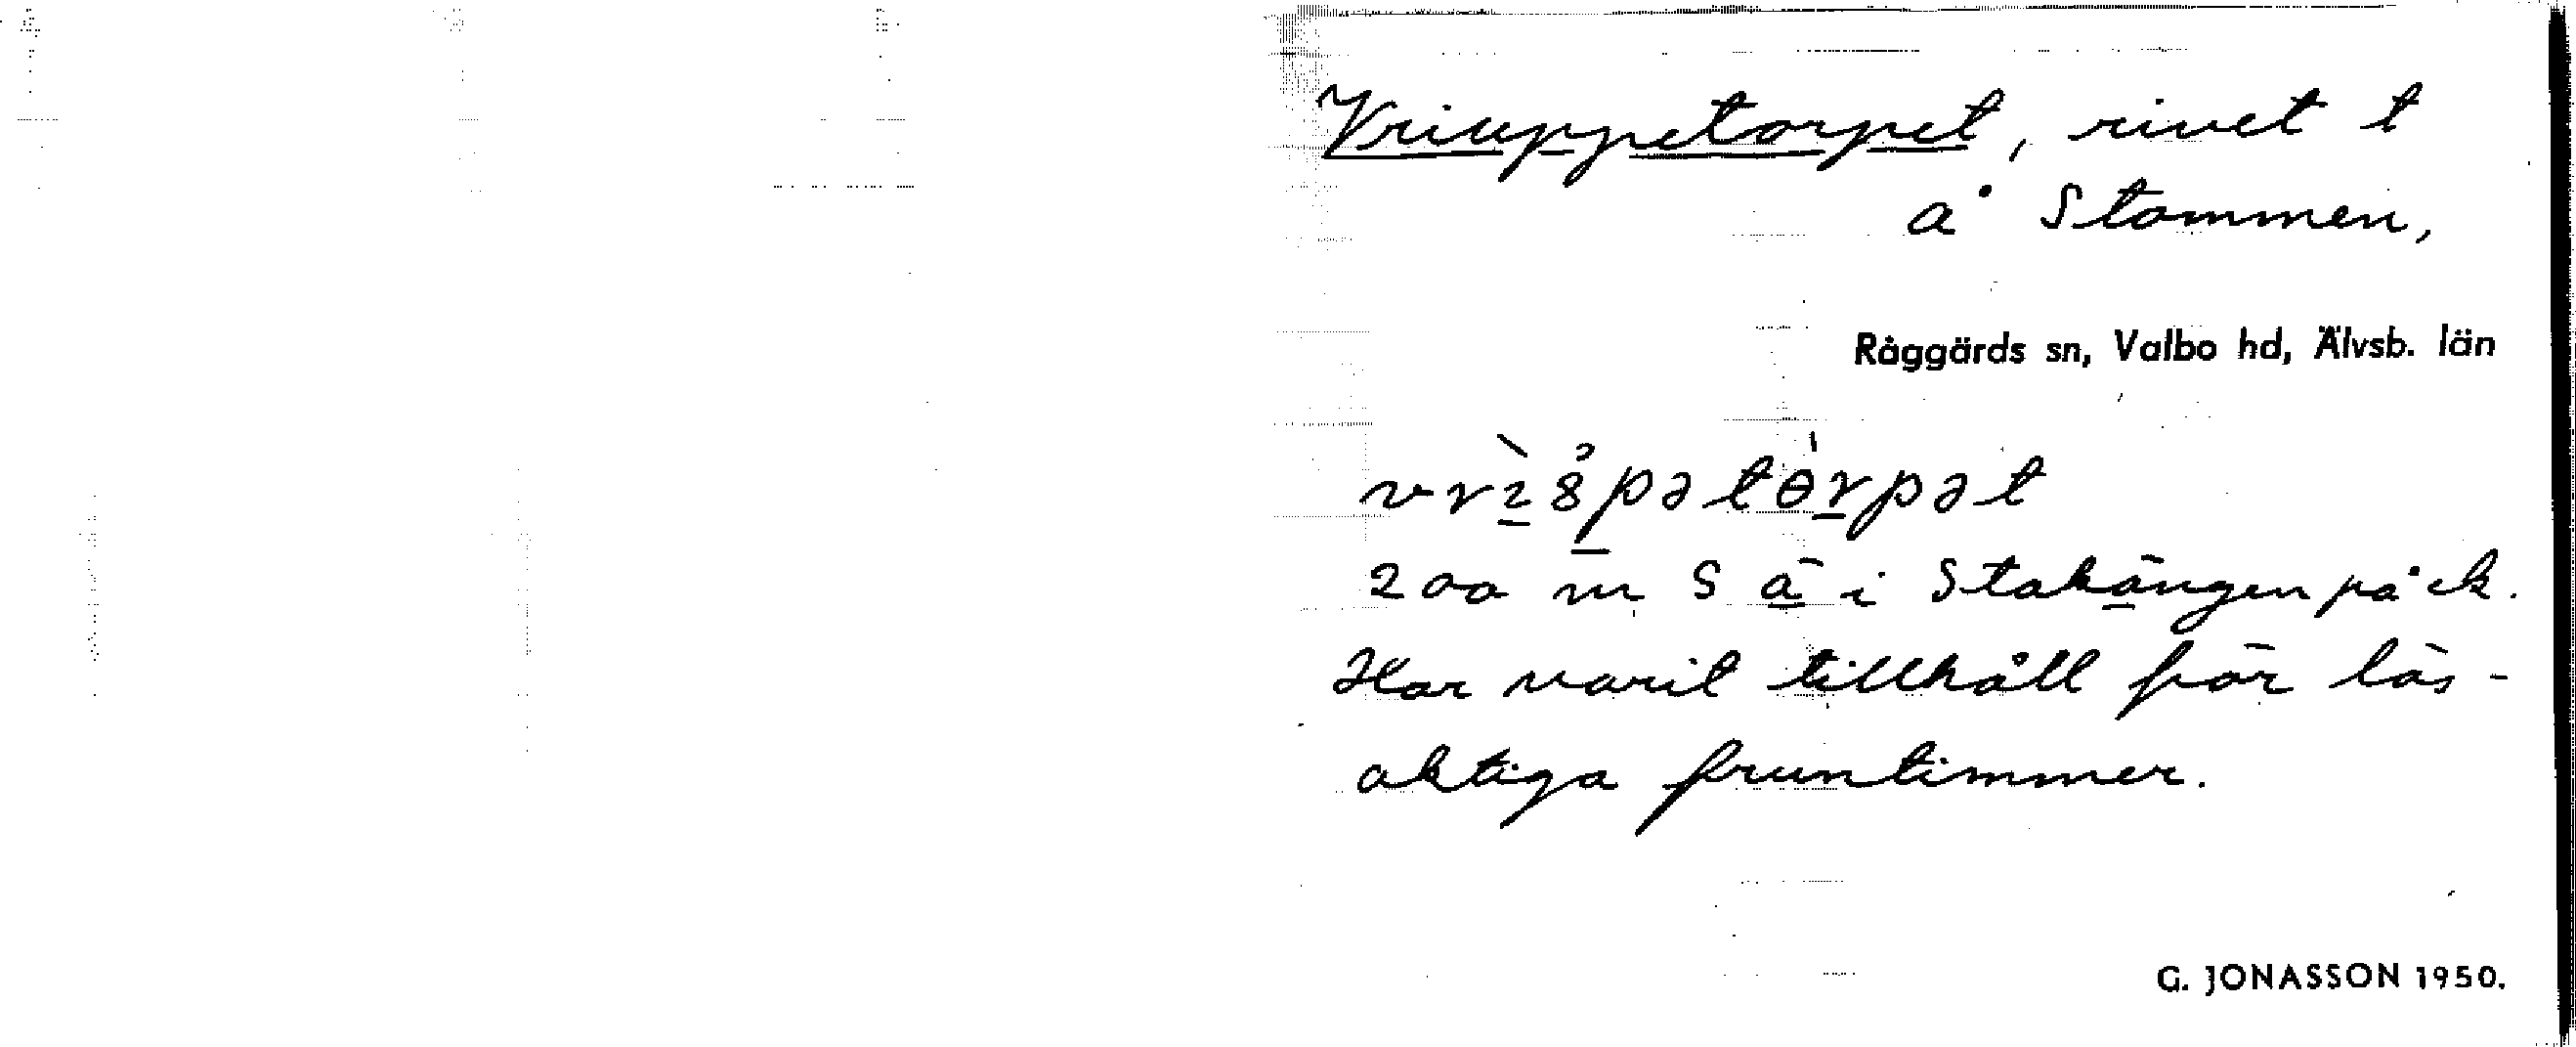 Vriuppetorpet, rivet t
å Stommen,
Råggärds sn, Valbo hd, Älvsb. län
200 m S ä i Stakängen på ek.
Har varit tillhåll för lös-
aktiga fruntimmer.
G. JONASSON 1950.